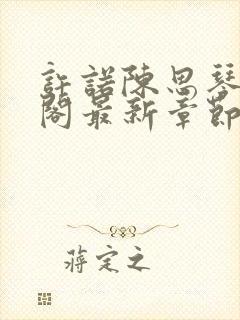 許諾陳思琴
閣最新章節
蔣定之